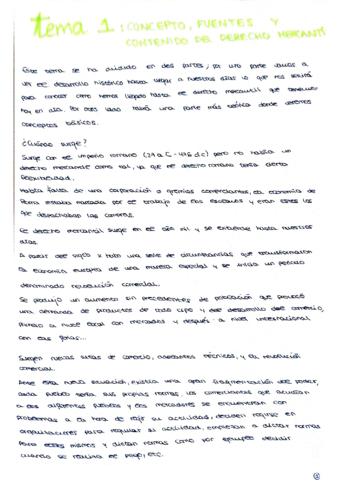 tema 1: CONCEPTO, FUENTES Y
CONTENIDO DEL DERECHO MERCANTIL
Este tema se ha dividido en dos partes, por una parte vamos a
ver el desarrollo histórico hasta llegar a nuestros días lo que nos servirá
para conocer cómo hemos llegado hasta el derecho mercantil que tenemos
hoy en día. Por otro lado habrá una parte más teórica donde veremos
conceptos básicos.
¿Cuándo surge?
Surge con el imperio romano (27 a.C - 476 d.c) pero no había un
derecho mercantil como tal, ya que el derecho romano tenía cierta
flexibilidad.
Había falta de una corporación o gremios comerciantes, la economía de
Roma estaba marcada por el trabajo de los esclavos y eran estos los
que despachaban las compras.
El derecho mercantil surge en el año mil y se extiende hasta nuestros
días.
A partir del siglo X hubo una serie de circunstancias que transformaron
la economía europea de una manera especial y se inicia un período
denominado revolución comercial.
Se produjo un aumento sin precedentes de población que provocó
una demanda de productos de todo tipo y del desarrollo del comercio,
primero a nivel local con mercados y después a nivel internacional
con las ferias...
Surgen nuevas rutas de comercio, adelantos técnicos, y la revolución
comercial.
Ante esta nueva situación, existía una gran fragmentación del poder,
cada pueblo tenía sus propias normas, los comerciantes que acudían
a los diferentes pueblos y los mercaderes se encuentran con
problemas a la hora de regir su actividad, deciden reunirse en
organizaciones para regular su actividad, empiezan a dictar normas
para ellos mismos y dictan normas como por ejemplo decidir
cuando se realiza el pago, etc.